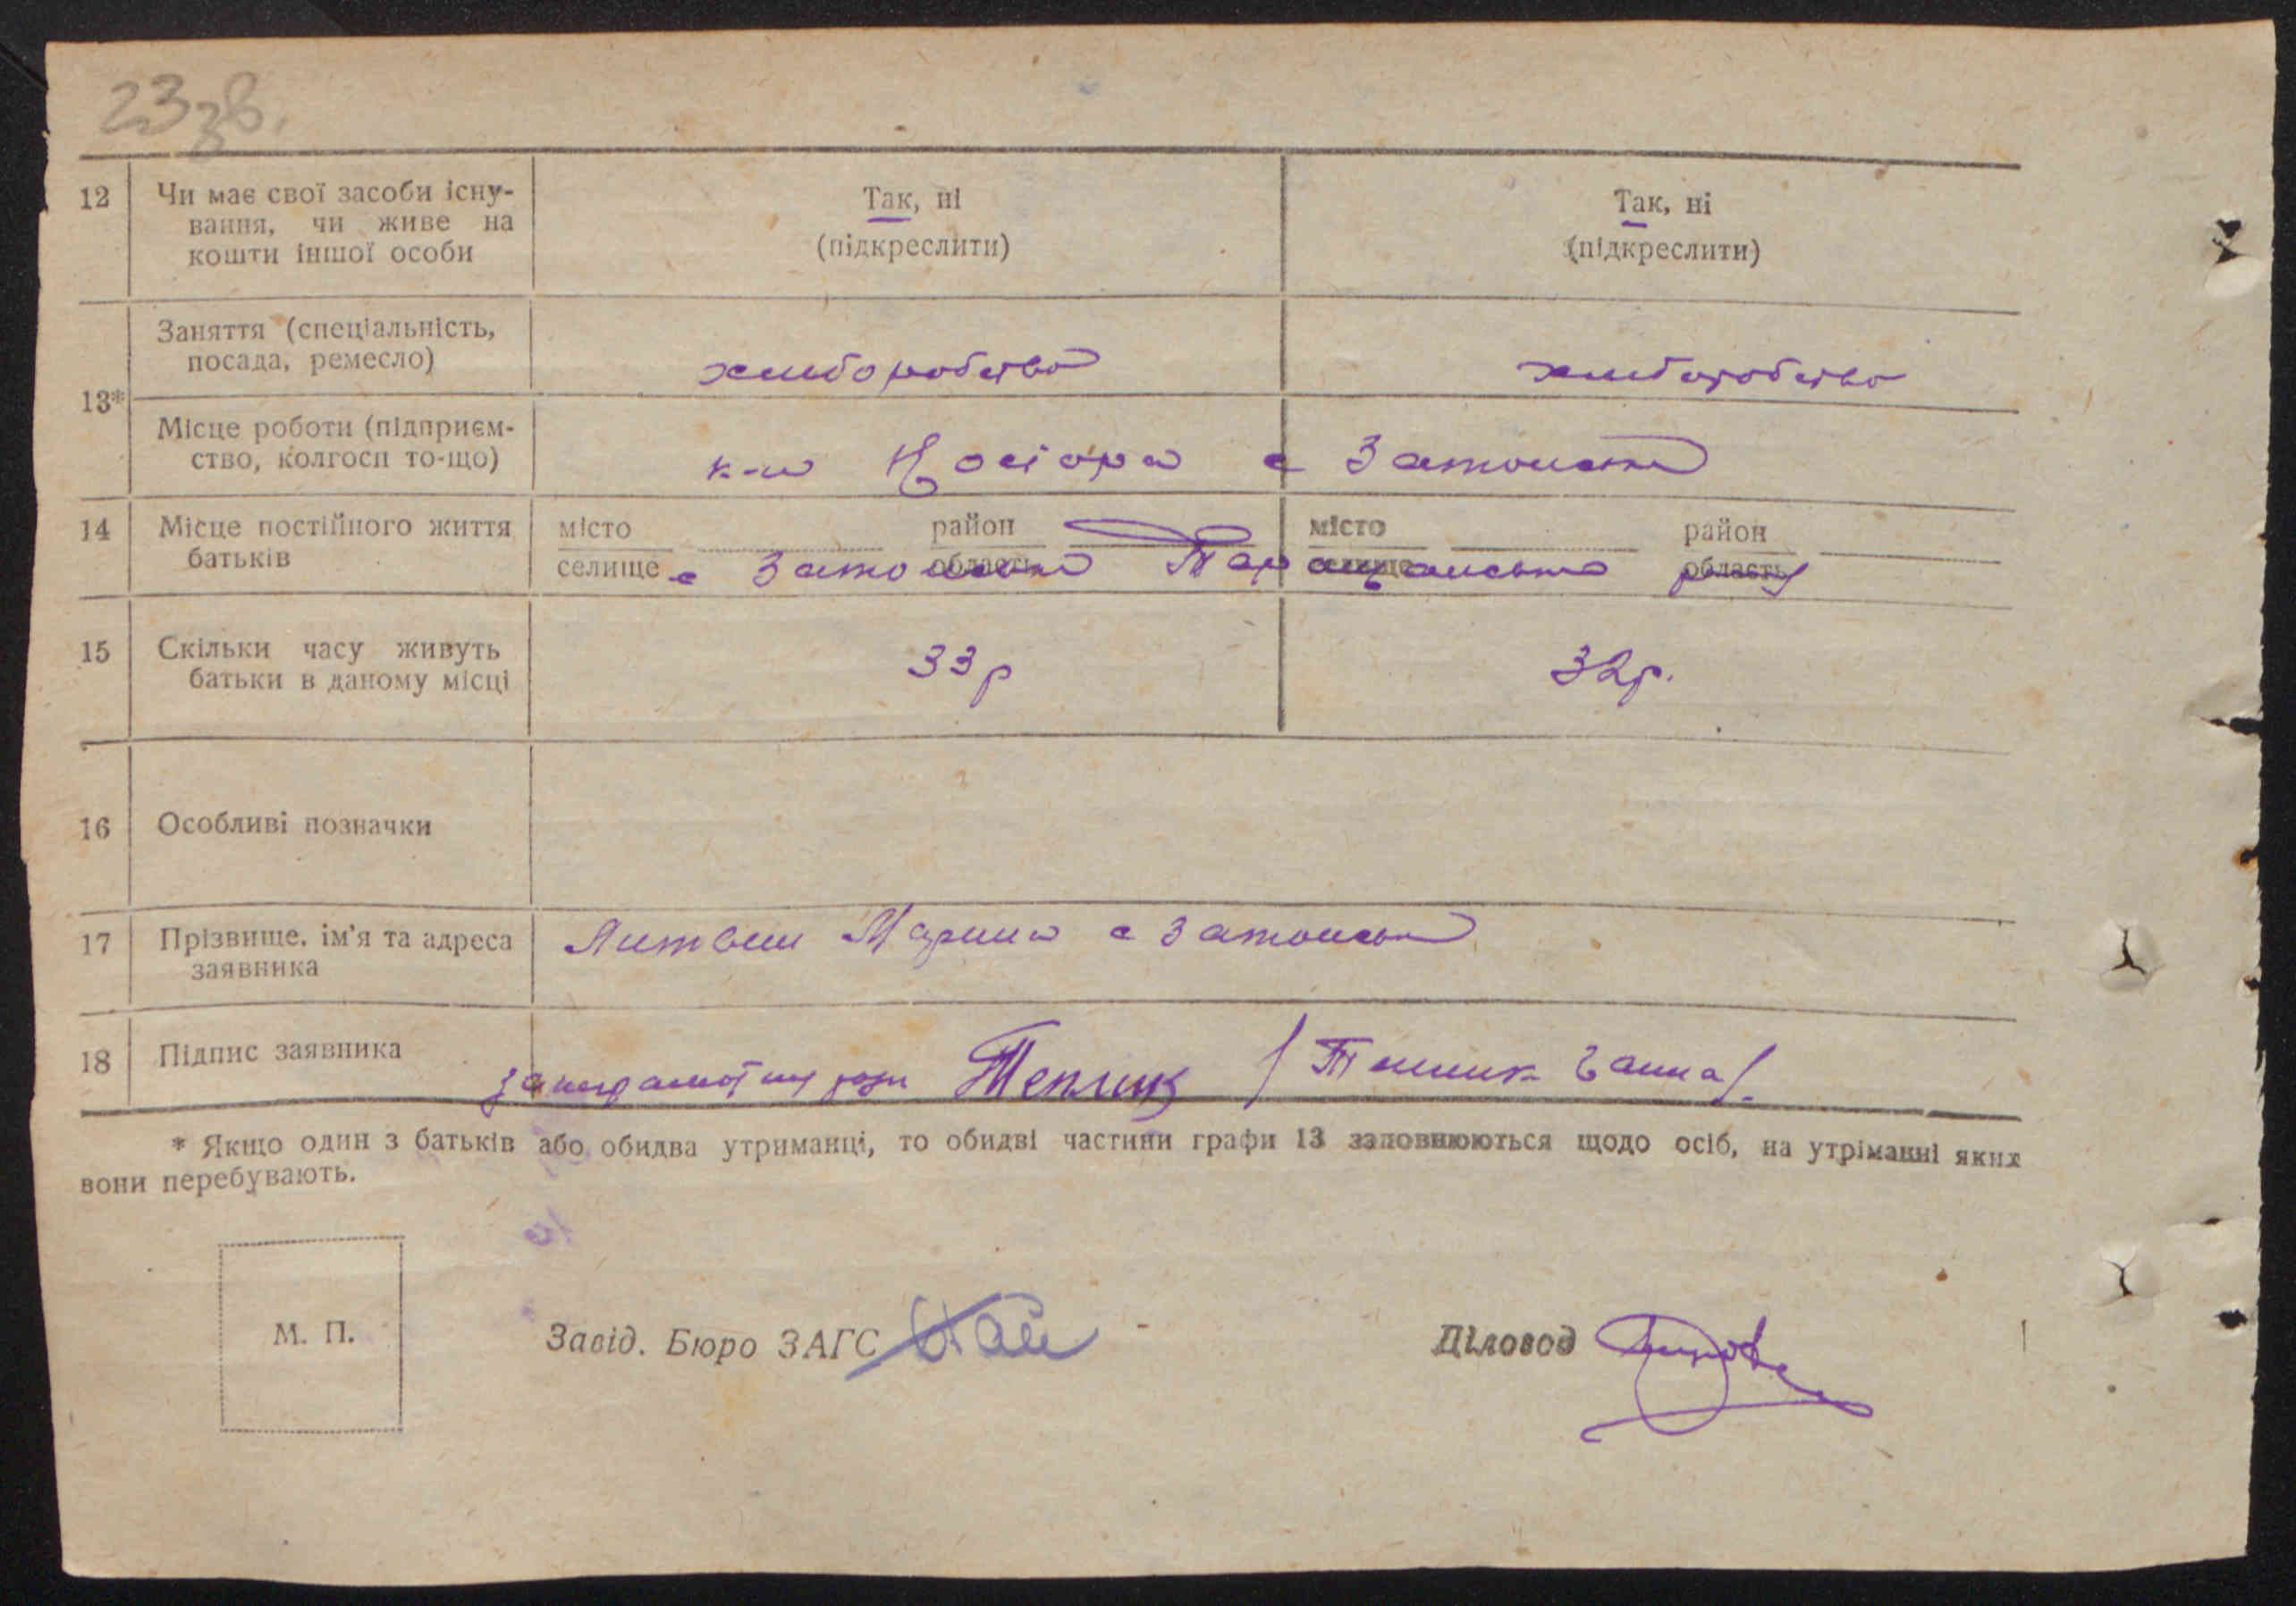 23 зв.
12 Чи має свої засоби існу- Так, ні Так, ні
вання, чи живе на (підкреслити) (підкреслити)
кошти іншої особи
Заняття (спеціальність,
посада, ремесло) хліборобство хліборобство
13*
Місце роботи (підприєм-
ство, колгосп то-що) к-п Косіора с Затонськ
14 Місце постійного життя місто район місто район
батьків селище с Затонськ область Таращанського селище р-ну область
15 Скільки часу живуть 33 р 32 р.
батьки в даному місці
16 Особливі позначки
17 Прізвище, ім'я та адреса Литвин Марина с Затонськ
заявника
18 Підпис заявника за неграмотну розп Теплик / Теплик Ганна /.
* Якщо один з батьків або обидва утриманці, то обидві частини графи 13 заповнюються щодо осіб, на утріманні яких
вони перебувають.
М. П. Завід. Бюро ЗАГС Діловод